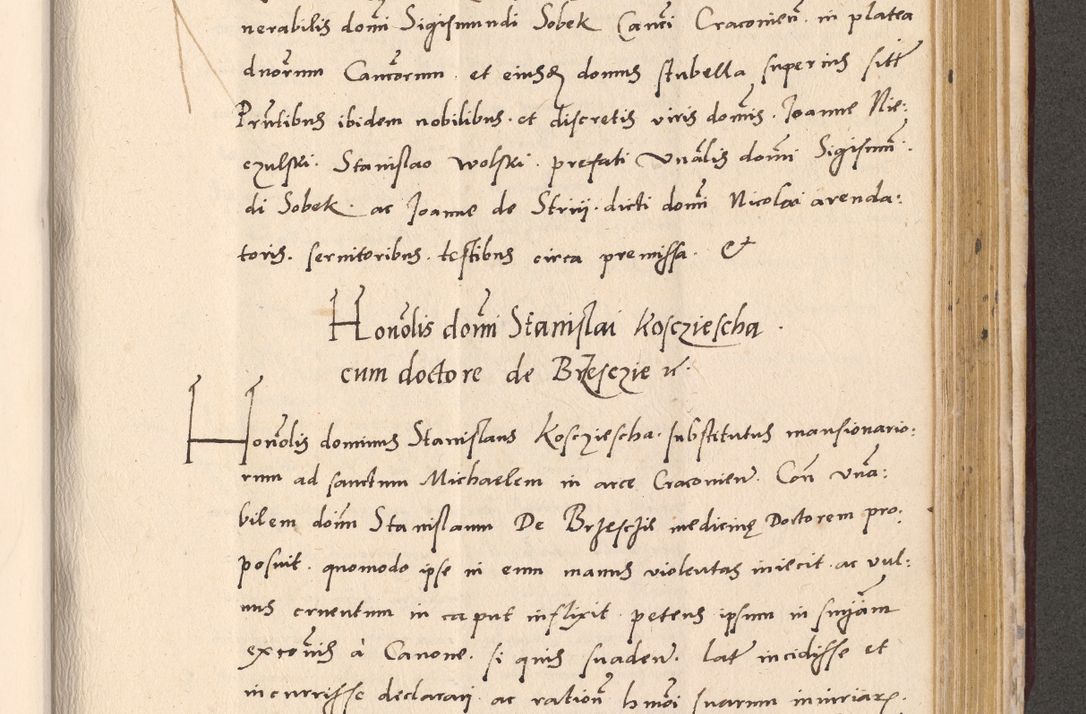 nerabilis domi Sigismundi Sobek Canci Cracovien̄ in platea
dnorum Cancorum et eiusdē domus stubella superius sitt
Pntibus ibidem nobilibus et discretis viris domis Joanne Nie:
czulski Stanislao Wolski prefati Vnalis domi Sigismu:
di Sobek ac Joanne de Strij dicti domi Nicolai arenda:
toris servitoribus testibus circa premissa &
Honolis domi Stanislai Koscziescha
cum doctore de Brzesczie
Honolis dominus Stanislaus Koscziescha substitutus mansionario:
rum ad sanctum Michaelem in arce Cracovien̄ Con Vnа:
bilem domi Stanislaum De Brzeschie medicinę Doctorem pro:
posuit quomodo ipse in eum manus violentas iniecit ac vul:
nus cruentum in caput inflixit petens ipsum in snīam
excōnis à Canone si quis suaden̄ lat incidisse et
incurrisse declarari ac ration̄ hmōi suarum iniuriarꝝ